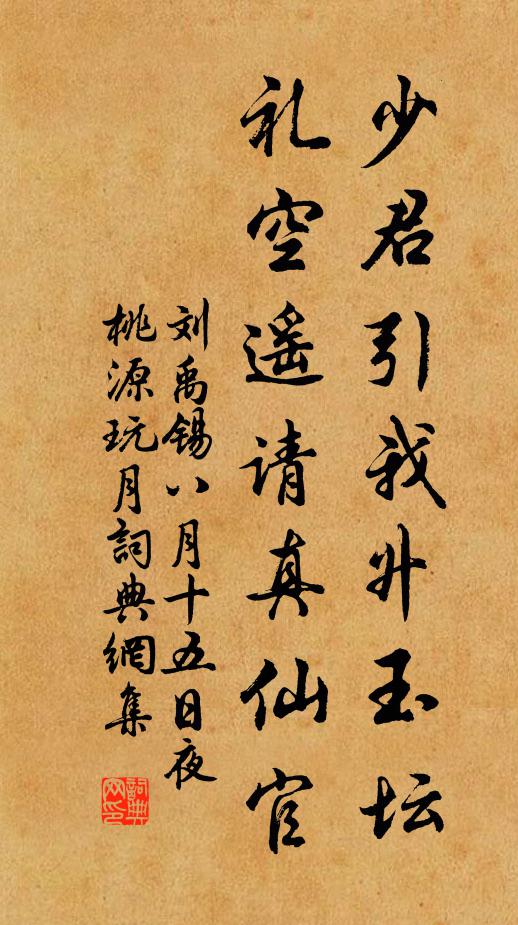 少君引我升玉坛
礼空遥请真仙官
刘禹锡八月十五日夜
桃源玩月詞典網集
詞典
网印